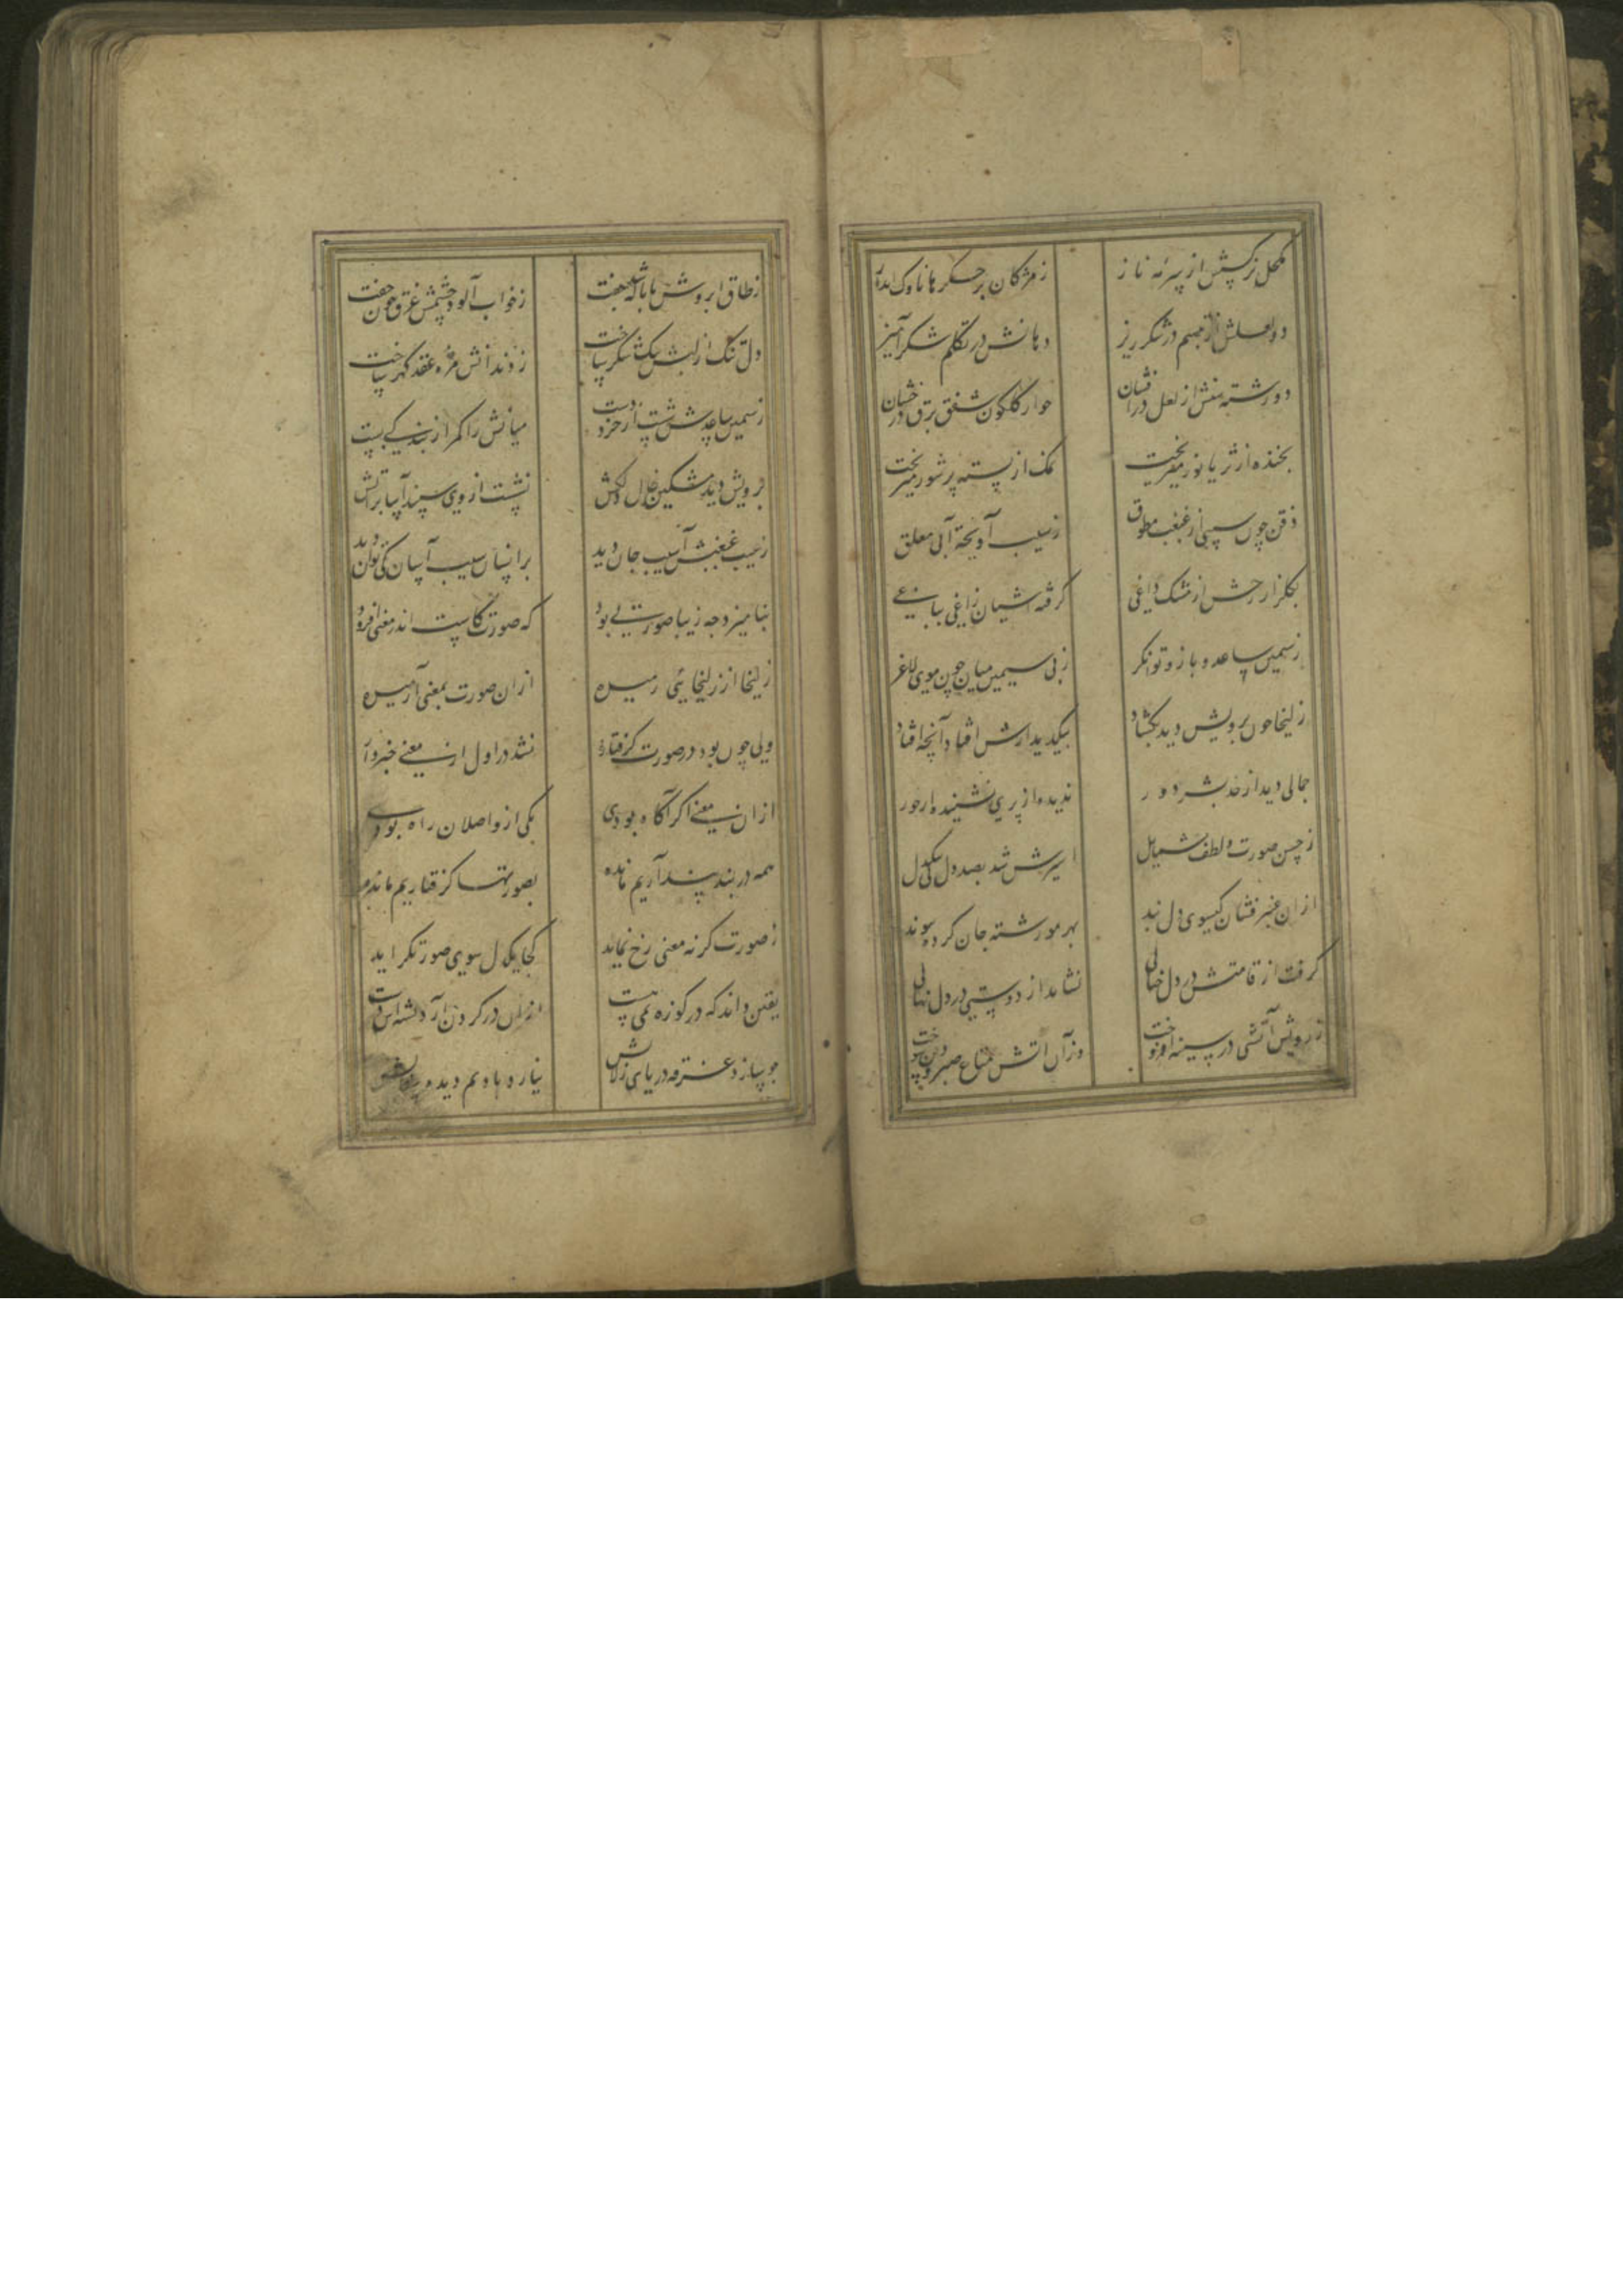 مکحل نرکسش از سرمه ناز ز مژکان بر جکرها ناوک انداز
دو لعلش از تبسم در شکر ریز دهانش در تکلم شکر آمیز
دو رشته منش از لعل در افشان جو از کلکون شفق برق درخشان
بخنده از ثریا نور میریخت نمک از پسته پر شور میریخت
ذقن چون سیبی از غبغب مطوق ز سیب آویخته آبی معلق
بکلزار رخش از مشک داغی کرفته آشیان زاغی بباغی
ز سیمین ساعد و بازو توانکر ز بی سیمی میان چون موی لاغر
زلیخا چون برویش دیده بکشاد بیک دیدارش افتاد آنچه افتاد
جمالی دید از حد بشر دور ندیده از پری نشنیده از حور
ز حسن صورت و لطف شمایل اسیرش شد بصد دل نی بیک دل
ازان عنبرفشان کیسوی دل بند بهر مو رشته جان کرده پیوند
کرفت از قامتش در دل خیالی نشاند از دوستی در دل نهالی
ز رویش آتشی در سینه افروخت وزان آتش متاع صبر و دین سوخت
ز طاق ابروش با ناله شد جفت ز خواب آلوده چشمش غرق خون خفت
دل تنک از لبش تنک شکر ساخت ز دندانش مژه عقد کهر ساخت
ز سیمین ساعدش شست از خرد دست میانش را کمر از بندکی بست
برویش دید مشکین خال دلکش نشست از وی سپند آسا بر آتش
ز سیب غبغبش آسیب جان دید بر انسان سیب آسیبان کی توان دید
بنامیزد چه زیبا صورتی بود که صورت کاست اندر معنی افزود
زلیخا از زلیخایی رمیده ازان صورت بمعنی آرمیده
ولی چون بود در صورت کرفتار نشد در اول از معنی خبردار
ازان معنی اکر آکاه بودی یکی از واصلان راه بودی
همه در بند پنداریم مانده بصورتها کرفتاریم مانده
ز صورت کر نه معنی رخ نماید کجا یک دل سوی صورت کراید
یقین داند که در کوزه نمی هست ازان در کردن آرد تشنه اش دست
چو سازد غرقه دریای زلالش نیارد یاد نم دیده سفالش